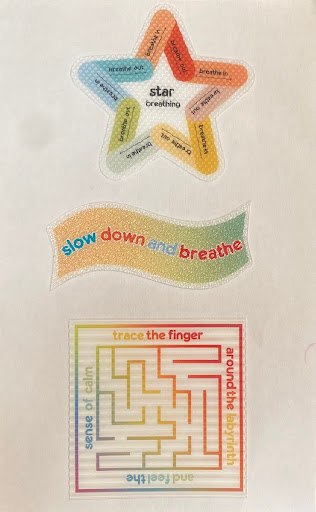 breathe in
breathe out
breathe in
breathe out
breathe in
breathe out
breathe in
breathe out
breathe in
breathe out
star
breathing
slow down and breathe
trace the finger
around the labyrinth
and feel the
sense of calm